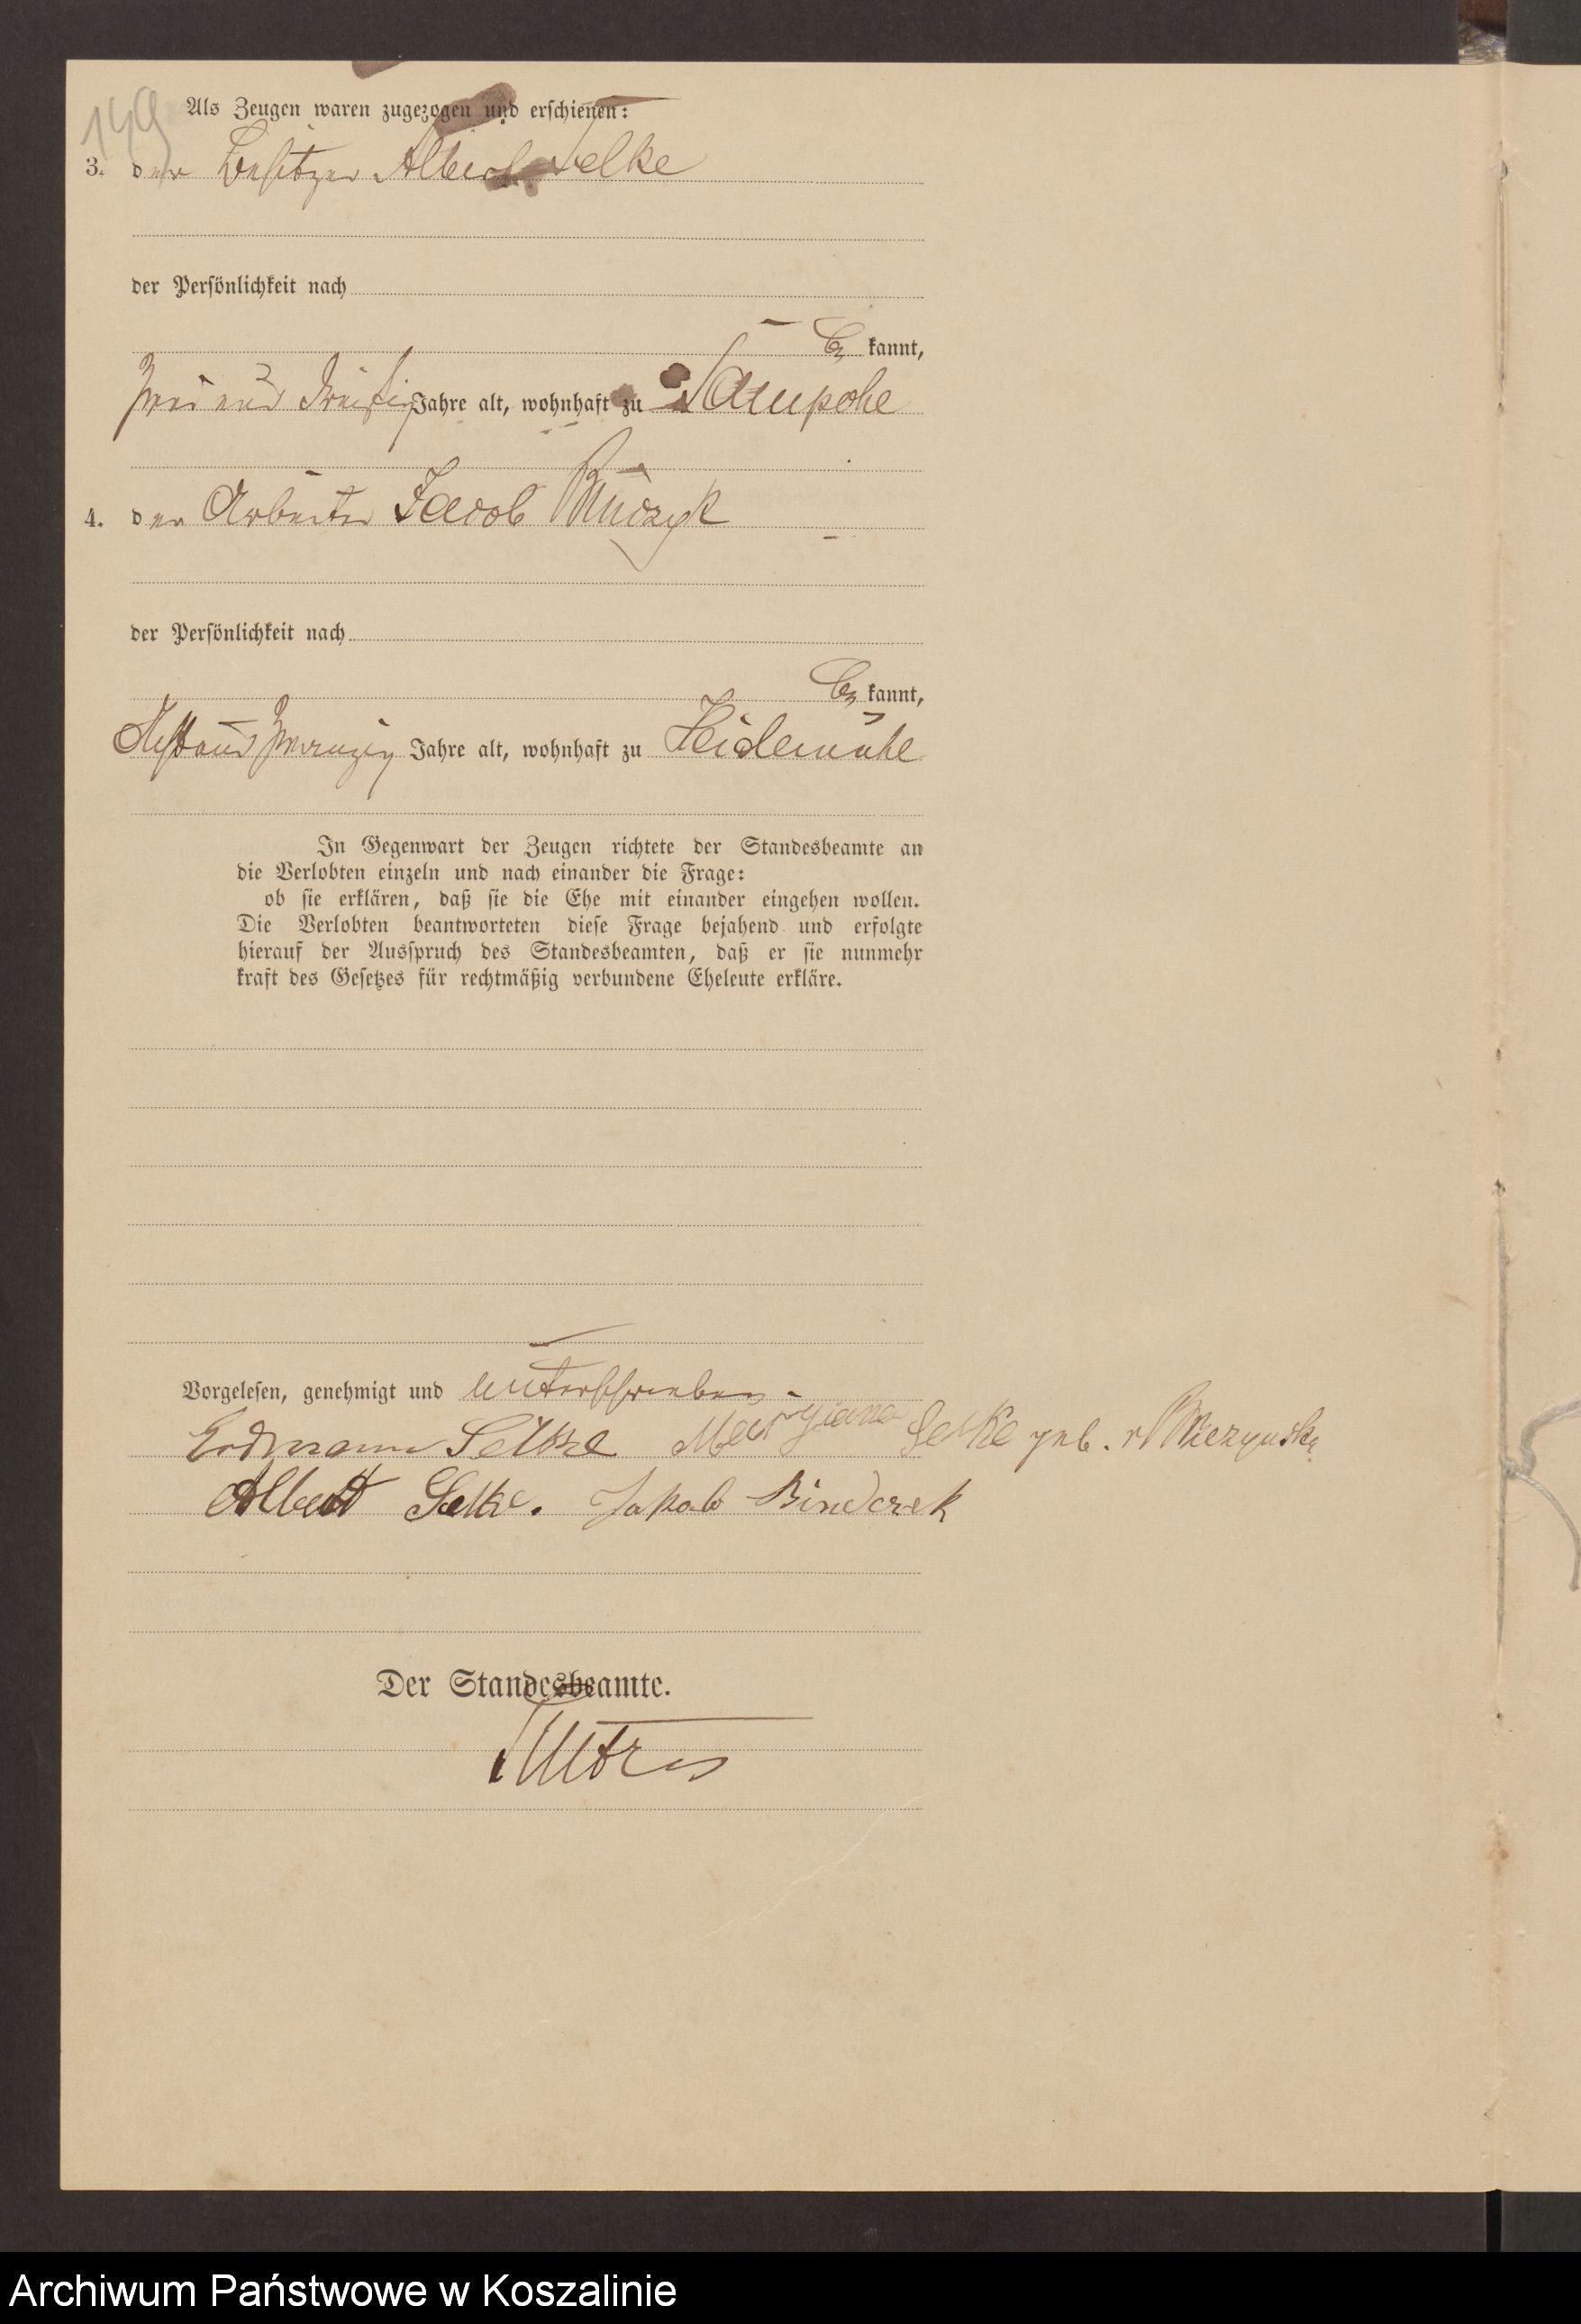 149
Als Zeugen waren zugezogen und erschienen:
3. der Besitzer Albert Selke
der Persönlichkeit nach
be kannt,
zwei und dreißig Jahre alt, wohnhaft zu Sampohl
4. der Arbeiter Jacob
der Persönlichkeit nach
be kannt,
Acht und zwanzig Jahre alt, wohnhaft zu Heidemühl
In Gegenwart der Zeugen richtete der Standesbeamte an
die Verlobten einzeln und nach einander die Frage:
ob sie erklären, daß sie die Ehe mit einander eingehen wollen.
Die Verlobten beantworteten diese Frage bejahend und erfolgte
hierauf der Ausspruch des Standesbeamten, daß er sie nunmehr
kraft des Gesetzes für rechtmäßig verbundene Eheleute erkläre.
Vorgelesen, genehmigt und unterschrieben
Erdmann Selke Maryianna Selke geb. v
Albert Selke. Jakob Binderek
Der Standesbeamte.
Archiwum Państwowe w Koszalinie